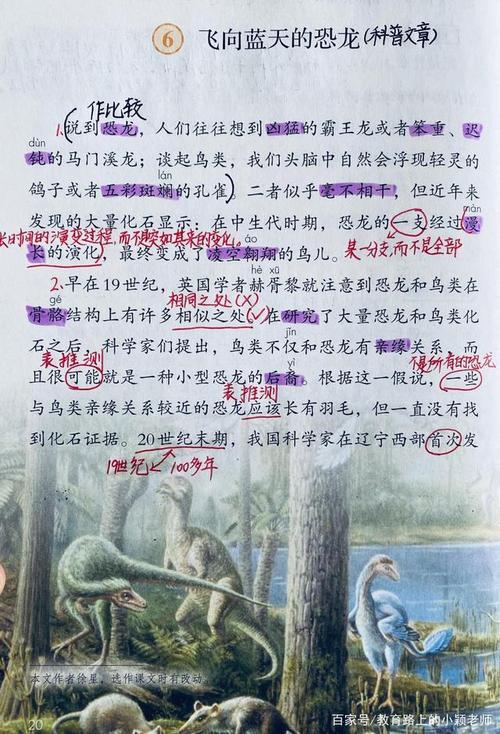 6 飞向蓝天的恐龙(科普文章)
作比较
1.说到恐龙，人们往往想到凶猛的霸王龙或者笨重、迟
dùn
钝的马门溪龙；谈起鸟类，我们头脑中自然会浮现轻灵的
lán
鸽子或者五彩斑斓的孔雀。二者似乎毫不相干，但近年来
màn
发现的大量化石显示：在中生代时期，恐龙的一支经过漫
长时间的演变过程,而不是突如其来的变化。
áo
某一分支,而不是全部
长的演化，最终变成了凌空翱翔的鸟儿。
hè xū
2.早在19世纪，英国学者赫胥黎就注意到恐龙和鸟类在
gé
相同之处(X)
骨骼结构上有许多相似之处(√)。在研究了大量恐龙和鸟类化
jīn
石之后，科学家们提出，鸟类不仅和恐龙有亲缘关系，而
表推测
yì
不是所有的恐龙
且很可能就是一种小型恐龙的后裔。根据这一假说，一些
表推测
与鸟类亲缘关系较近的恐龙应该长有羽毛，但一直没有找
到化石证据。20世纪末期，我国科学家在辽宁西部首次发
19世纪 100多年
本文作者徐星，选作课文时有改动。
20
百家号/教育路上的小颖老师